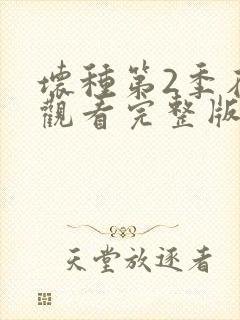 壞種第2季在
觀看完整版
天堂放逐者